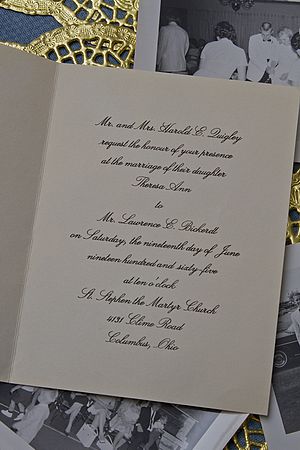 Mr. and Mrs. Harold E. Quigley
request the honour of your presence
at the marriage of their daughter
Theresa Ann
to
Mr. Lawrence E. Bickerdt
on Saturday, the nineteenth day of June
nineteen hundred and sixty-five
at ten o'clock
St. Stephen the Martyr Church
4131 Clime Road
Columbus, Ohio